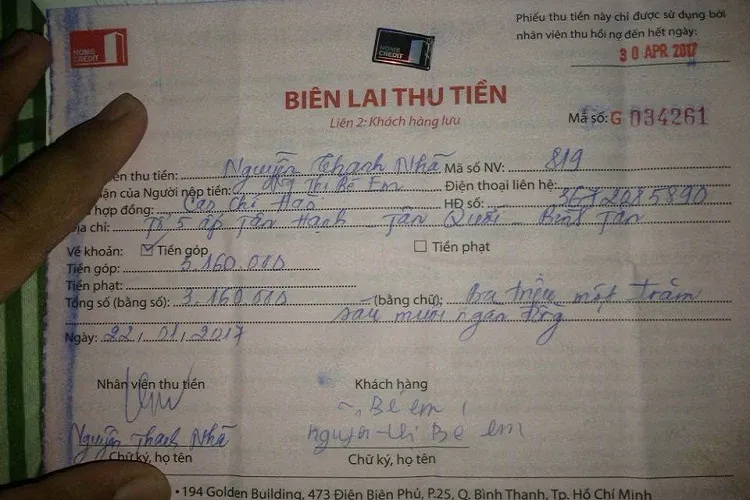 Phiếu thu tiền này chỉ được sử dụng bởi
nhân viên thu hồi nợ đến hết ngày:
30 APR 2017
HOME CREDIT
HOME CREDIT
BIÊN LAI THU TIỀN
Liên 2: Khách hàng lưu
Mã số: G 034261
ên thu tiền: Nguyễn Thanh Nhã Mã số NV: 819
ận của Người nộp tiền: Thị Bé Em Điện thoại liên hệ:
hợp đồng: Cao Chí Hao HĐ số: 3672085890
ịa chỉ: Tổ 5 ấp Tân Hạnh Tân Quới Bình Tân
Về khoản: Tiền góp Tiền phạt
Tiền góp: 3.160.000
Tiền phạt:
Tổng số (bằng số): 3.160.000 (bằng chữ): ba triệu một trăm
sáu mươi ngàn đồng
Ngày: 22/01/2017
Nhân viên thu tiền Khách hàng
Bé em
Nguyễn Thanh Nhã nguyen thi Bé em
Chữ ký, họ tên Chữ ký, họ tên
• 194 Golden Building, 473 Điện Biên Phủ, P.25, Q. Bình Thạnh, Tp. Hồ Chí Minh